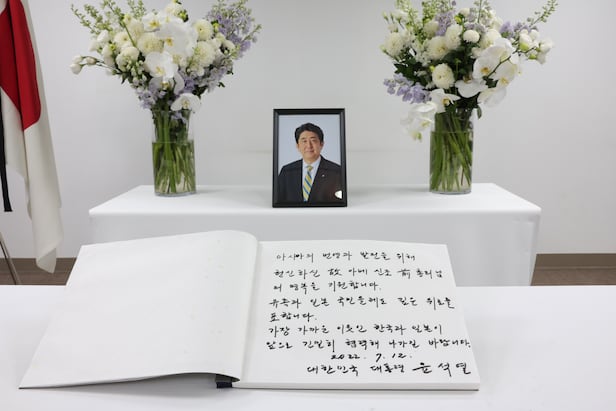 아시아의 번영과 발전을 위해
헌신하신 故 아베 신조 前 총리님
의 명복을 기원합니다.
유족과 일본 국민들에도 깊은 위로를
표합니다.
가장 가까운 이웃인 한국과 일본이
앞으로 긴밀히 협력해 나가길 바랍니다.
2022. 7. 12.
대한민국 대통령 윤석열